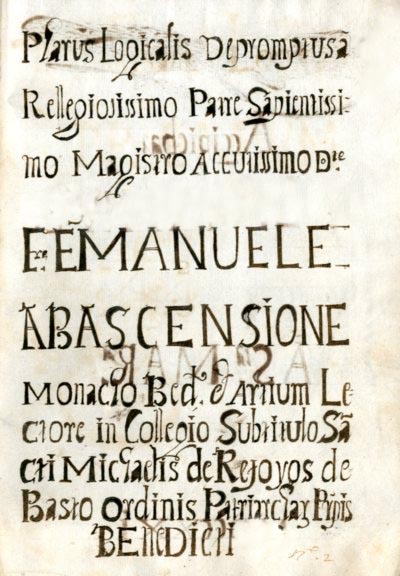 Plarus Logicalis Depromptus ã
Rellegiosissimo Patre Sapientissi-
mo Magistro Accutissimo D.re
Fr. EMANUELE
AB ASCENSIONE
Monacho Bed.º & Artium Le
ctore in Collegio Subtitulo Sã
cti Michaelis de Refoyos de
Basto Ordinis
BENEDICTI
nº. 2